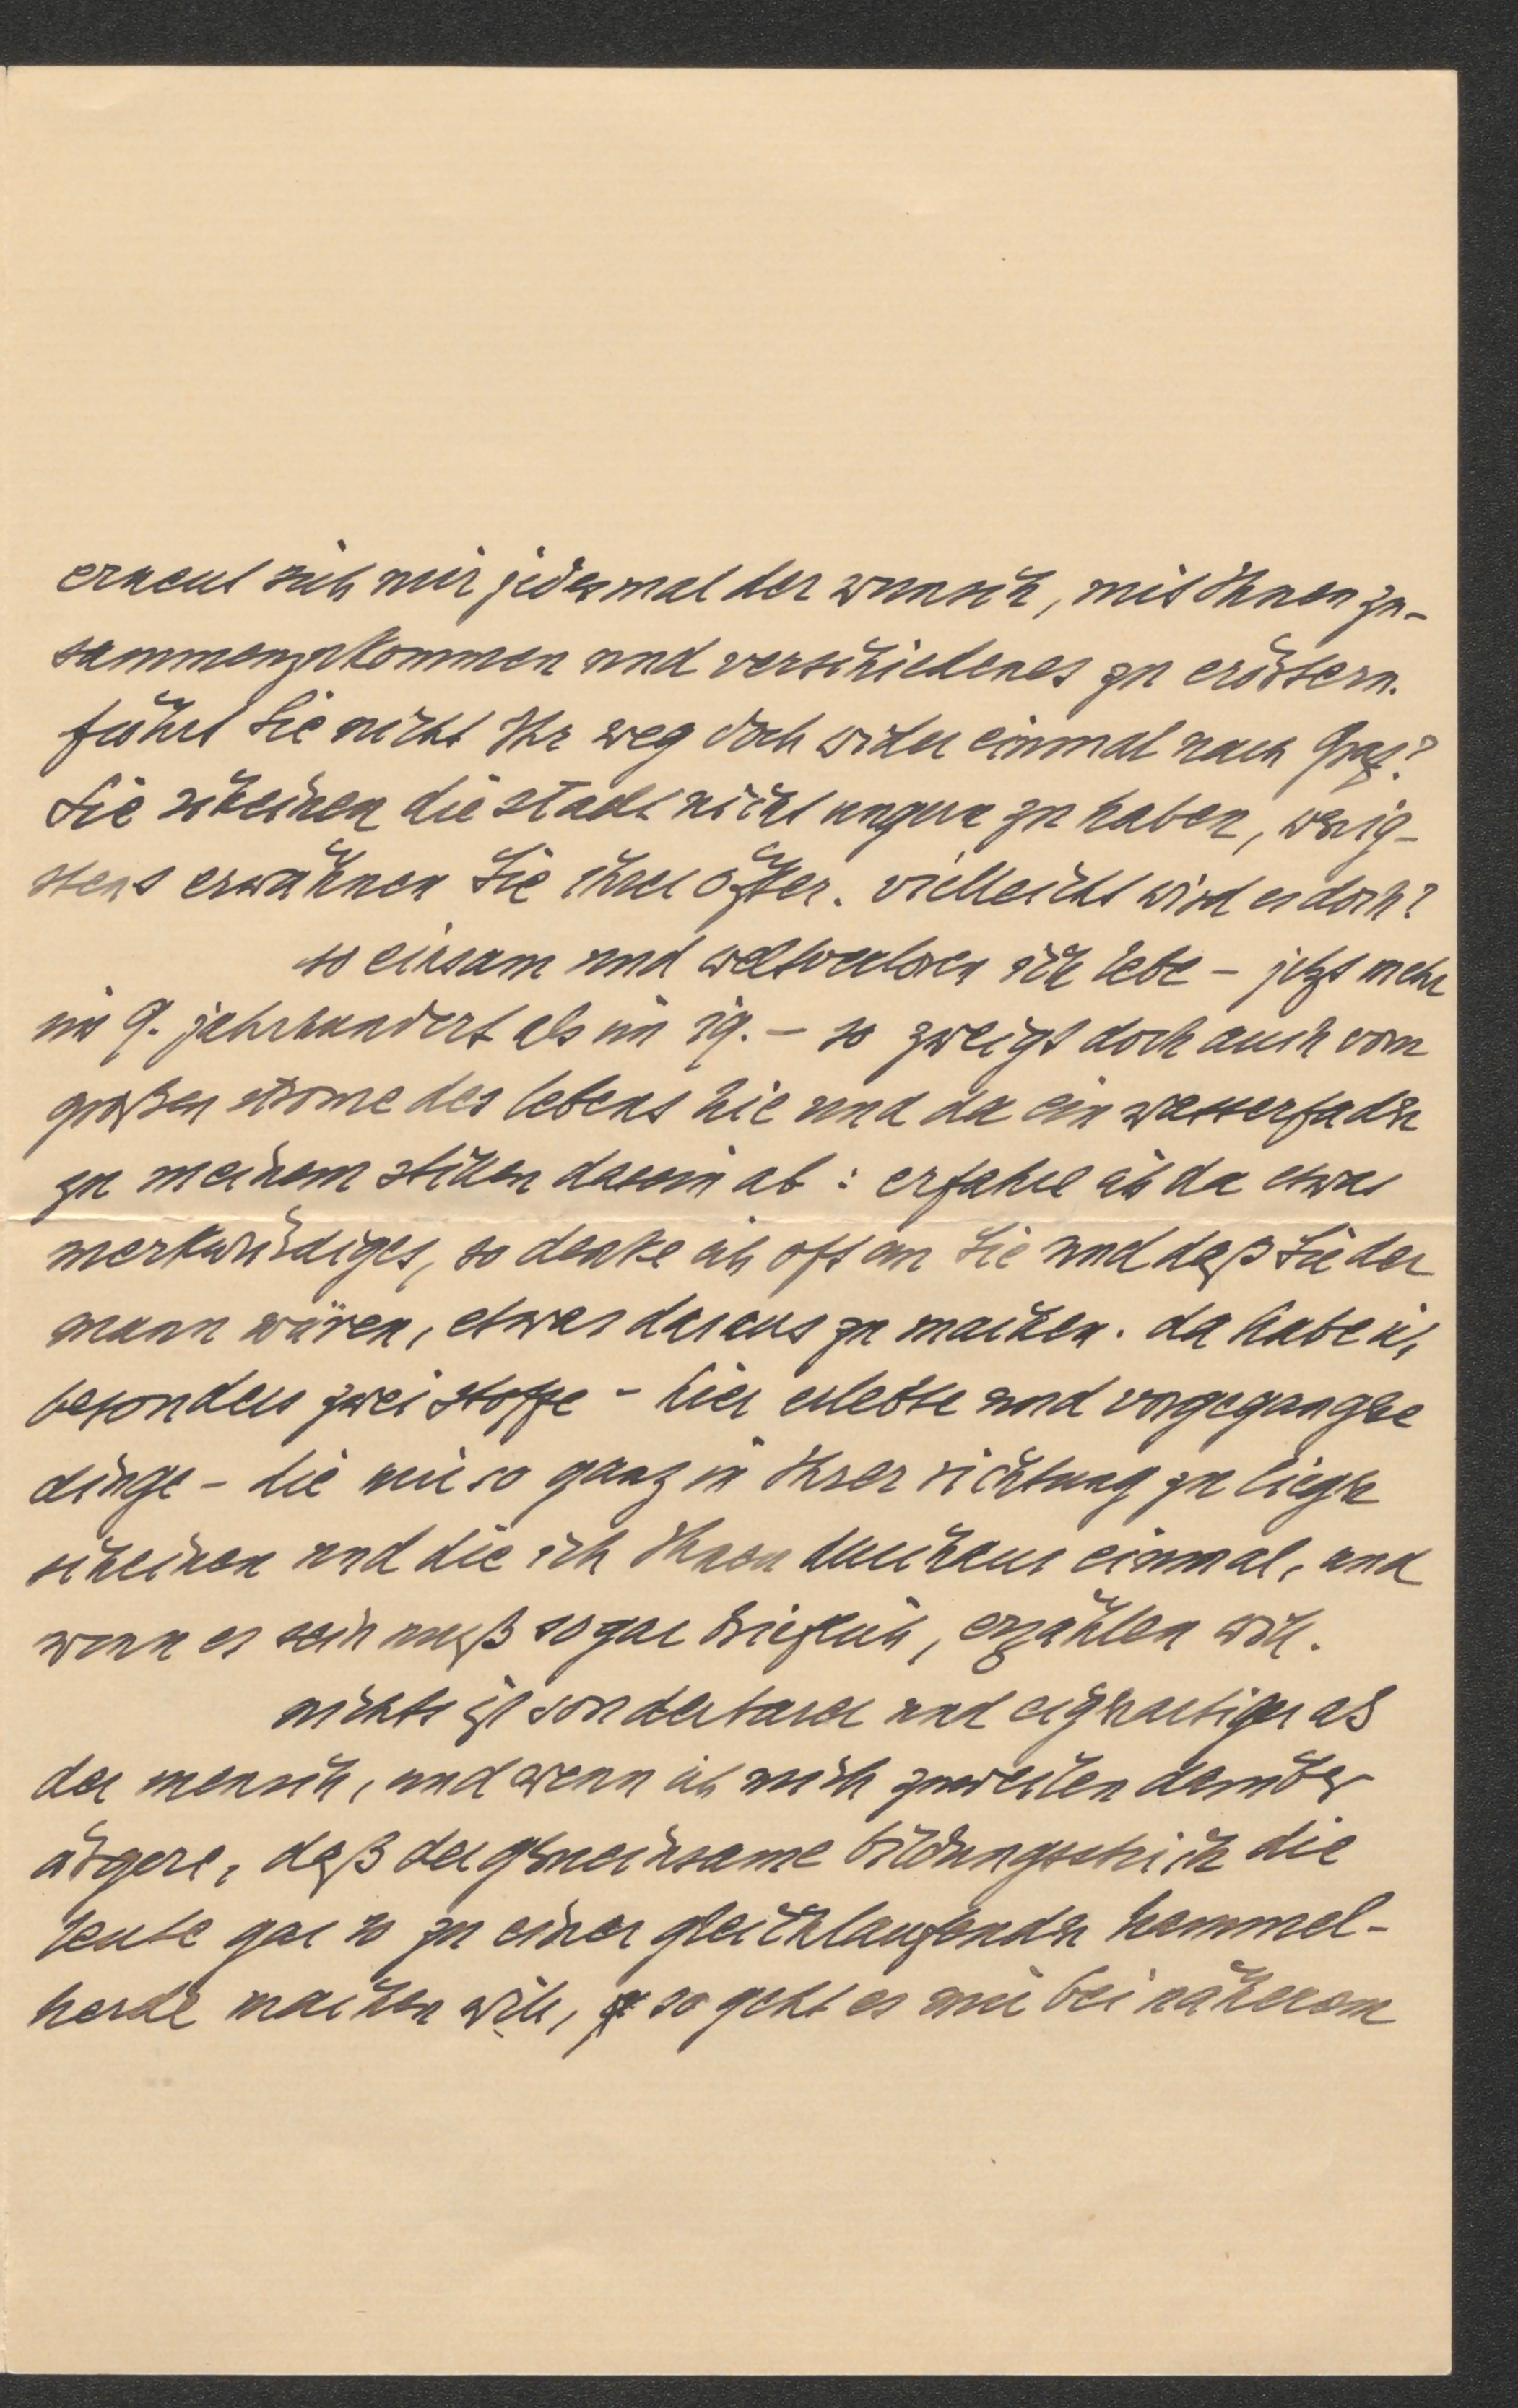 erneut sich mir jedesmal der wunsch, mit Ihnen zu-
sammenzukommen und verschiedenes zu erörtern.
führt Sie nicht Ihr weg doch wider einmal nach Graz?
Sie scheinen die stadt nicht ungern zu haben, wenig-
stens erwähnen Sie ihrer öfter. vielleicht wird es doch?
so einsam und weltverloren ich lebe – jetzt mehr
im 9. jahrhundert als im 19. – so zweigt doch auch vom
großen strome des lebens hie und da ein wasserfaden
zu meinem stillen dasein ab: erfahre ich da etwas
merkwürdiges, so denke ich oft an Sie und daß Sie der
mann wären, etwas daraus zu machen. da habe ich
besonders zwei stoffe – hier erlebte und vorgegangene
dinge – die mir so ganz in Ihrer richtung zu liegen
scheinen und die ich Ihnen durchaus einmal, und
wenn es sein muß sogar brieflich, erzählen will.
nichts ist sonderbarer und eigenartiger als
der mensch, und wenn ich mich zuweilen darüber
ärgere, daß der gemeinsame bildungsstrich die
leute gar so zu einer gleichlaufenden hammel-
herde machen will, so geht es mir bei näherem